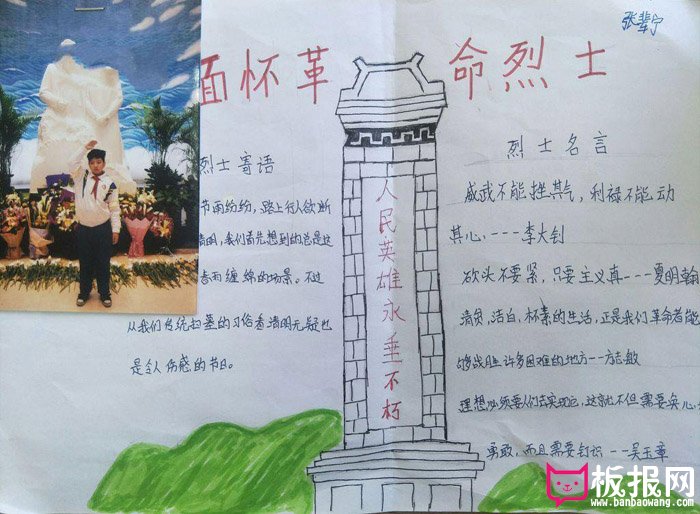 张辈宁
缅怀革命烈士
烈士寄语
节雨纷纷,路上行人欲断
清明,我们首先想到的总是这
春雨缠绵的场景。不过
从我们传统扫墓的习俗看清明无疑也
是令人伤感的节日。
人民英雄永垂不朽
烈士名言
威武不能挫其气,利禄不能动
其心,---李大钊
砍头不要紧,只要主义真---夏明翰
清贫,洁白,朴素的生活,正是我们革命者能
够战胜许多困难的地方--方志敏
理想必须要人们去实现它,这就不但需要决心,
勇敢,而且需要知识--吴玉章
板报网
www.banbaowang.com